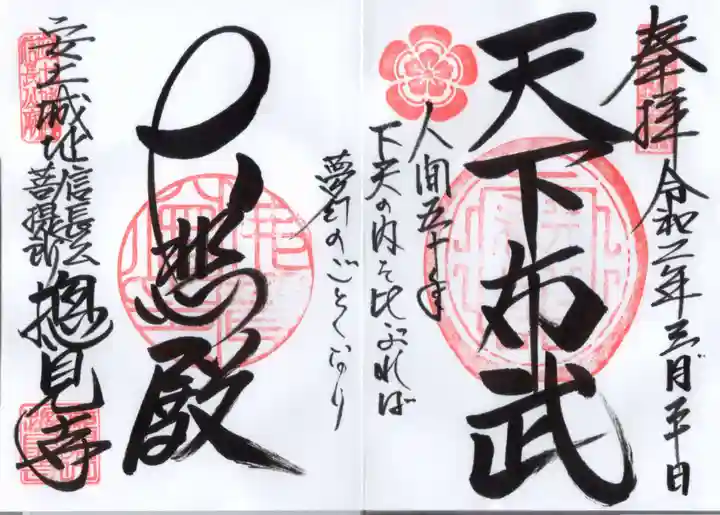 奉拝
令和二年三月二十日
天下布武
人間五十年
下天の内を比ぶれば
夢幻のごとくなり
大悲殿
安土城址
信長公
菩提所
摠見寺